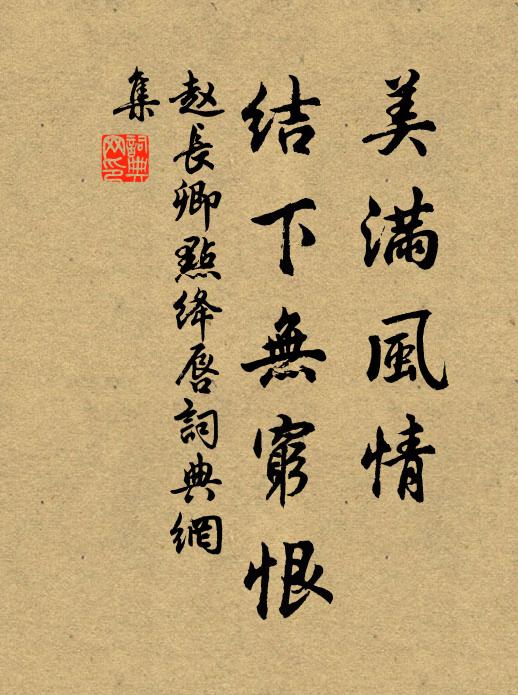 美滿風情
結下無窮恨
赵長卿點绛唇詞典網
集
詞典网印